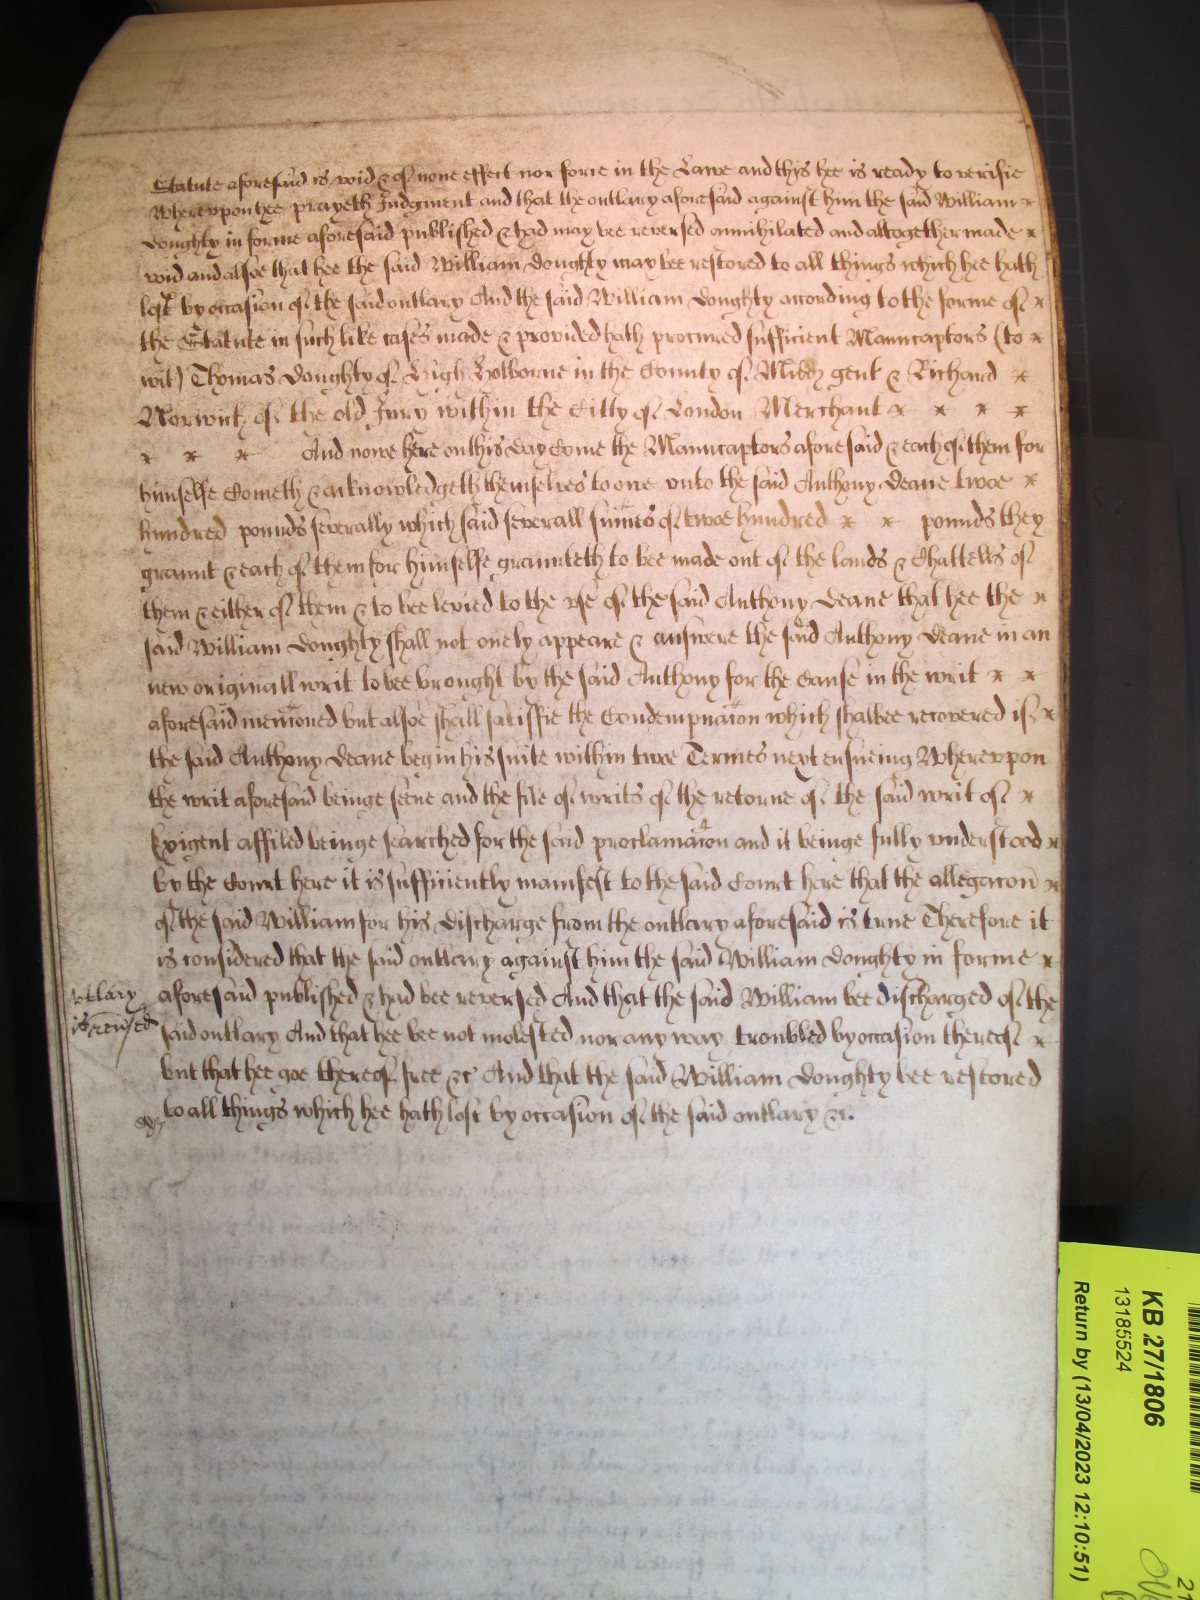 Statute aforesaid is void & of none effect nor force in the Lawe and this hee is ready to verifie
Wherevpon hee prayeth Judgment and that the outlary aforesaid against him the said William x
Doughty in forme aforesaid published & had may bee reversed annihilated and altogether made x
void and alsoe that hee the said William Doughty may bee restored to all things which hee hath
lost by occasion of the said outlary And the said William Doughty according to the forme of x
the Statute in such like cases made & provided hath procured sufficient Manucaptors (to x
wit) Thomas Doughty of High Holborne in the County of Midd gent & Richard x
Norwich of the old Jury within the Citty of London Merchant x x x x
x x x And nowe here on this day Come the Manucaptors aforesaid & each of them for
himselfe Cometh & acknowledgeth themselves to owe vnto the said Anthony Deane twoe x
hundred pounds severally which said severall sumes of twoe hundred x x pounds they
graunt & each of them for himselfe graunteth to bee made out of the lands & Chattells of
them & either of them & to bee levied to the vse of the said Anthony Deane that hee the x
said William Doughty shall not onely appeare & answere the said Anthony Deane in an
new originall writ to bee brought by the said Anthony for the Cause in the writ x x
aforesaid mencioned but alsoe shall satisffie the Condempnacion which shalbee recovered if x
the said Anthony Deane begin his suite within twoe Termes next ensueing Wherevpon
the writ aforesaid beinge seene and the file of writs of the retorne of the said writ of x
Exigent affiled beinge searched for the said proclamacion and it beinge fully vnderstood x
by the Court here it is sufficiently manifest to the said Court here that the allegacon x
of the said William for his discharge from the outlary aforesaid is true Therefore it
is considered that the said outlary against him the said William Doughty in forme x
aforesaid published & had bee reversed And that the said William bee discharged of the
vtlary
is reu'sed
said outlary And that hee bee not molested nor any way troubled by occasion thereof x
but that hee goe thereof free &c And that the said William Doughty bee restored
to all things which hee hath lost by occasion of the said outlary &c.
KB 27/1806
13185524
Return by (13/04/2023 12:10:51)